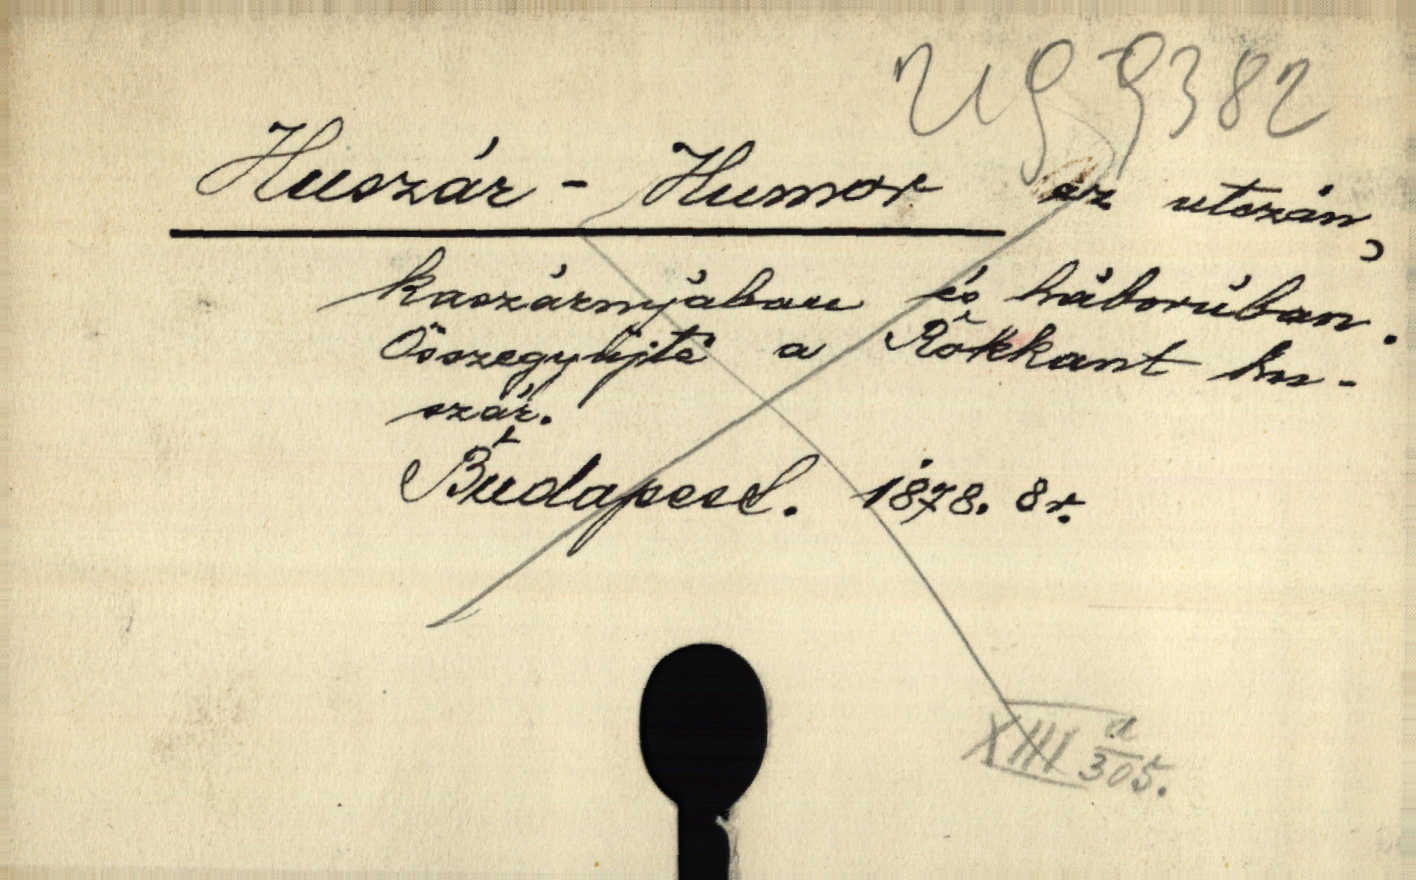 Huszár - Humor az utczán,
kaszárnyában és háborúban.
Összegyűjté a Rokkant hu-
szár.
Budapest. 1878. 8r.
XIII a/305.